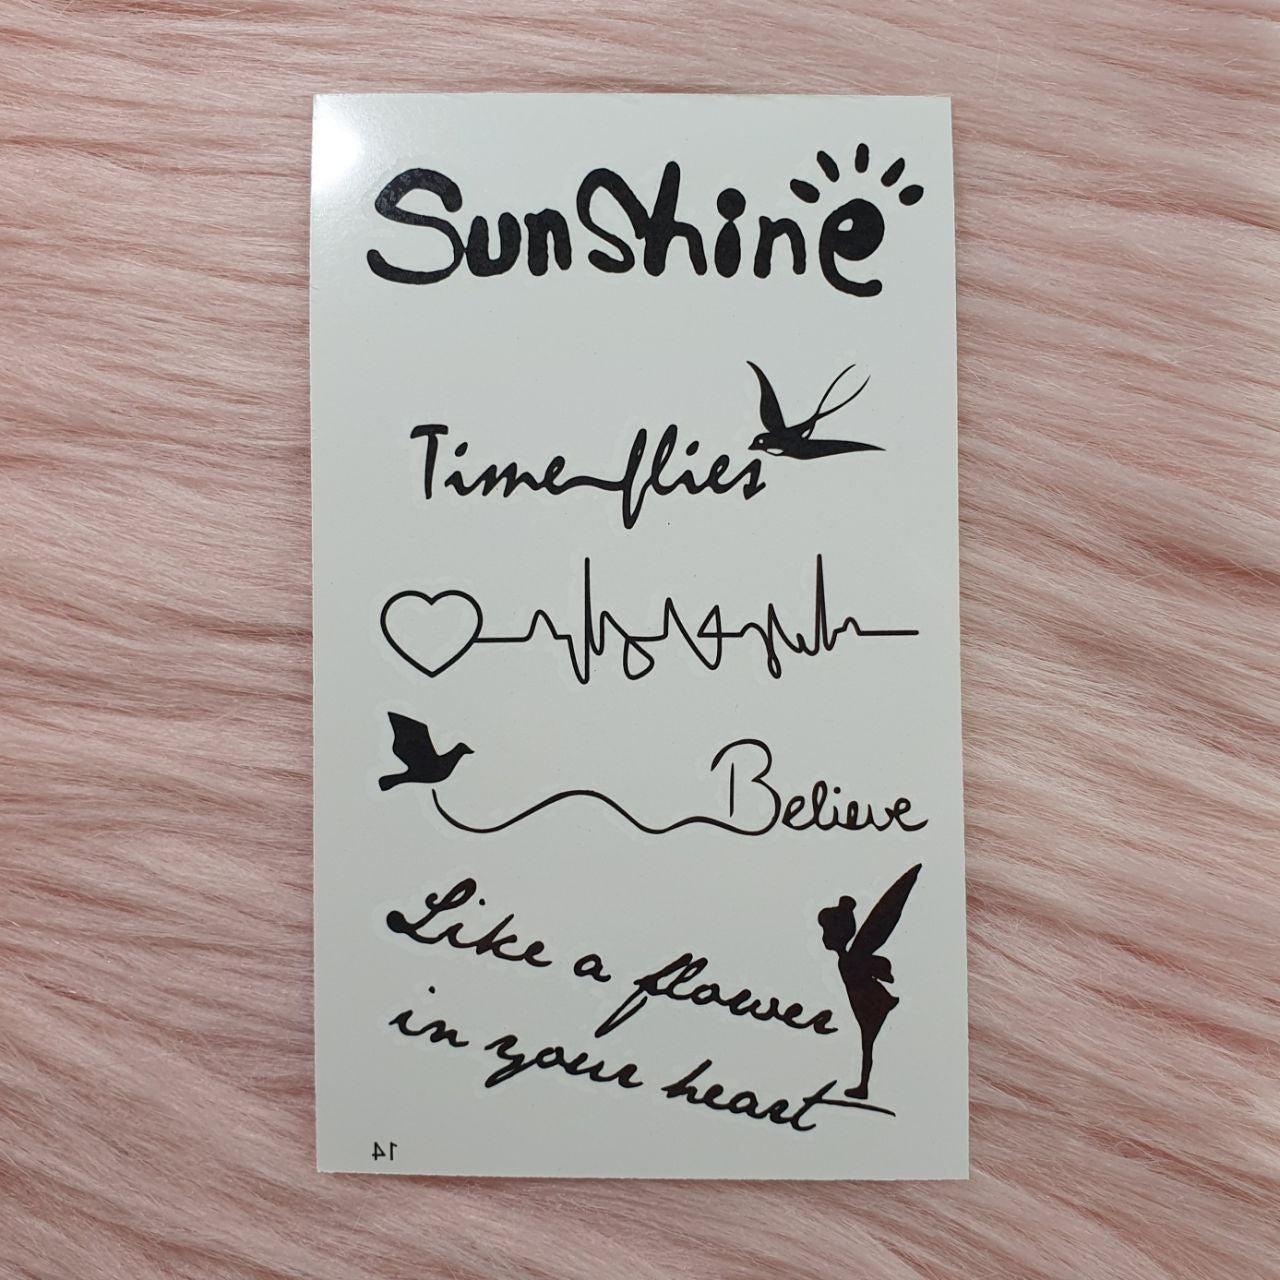 Sunshine
Time flies
Believe
Like a flower
in your heart
14